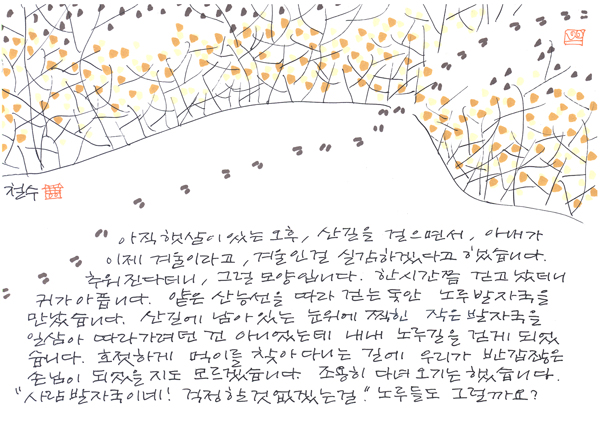 철수
아직 햇살이 있는 오후, 산길을 걸으면서, 아내가
이제 겨울이라고, 겨울인걸 실감하겠다고 했습니다.
추워진다더니, 그럴 모양입니다. 한시간쯤 걷고 났더니
귀가 아픕니다. 얕은 산능선을 따라 걷는 동안 노루발자국을
만났습니다. 산길에 남아있는 눈위에 찍힌 작은 발자국을
일삼아 따라가려던 건 아니었는데 내내 노루길을 걷게 되었
습니다. 호젓하게 먹이를 찾아 다니는 길에 우리가 반갑잖은
손님이 되었을지도 모르겠습니다. 조용히 다녀오기는 했습니다.
"사람발자국이네! 걱정할것 없겠는걸." 노루들도 그럴까요?